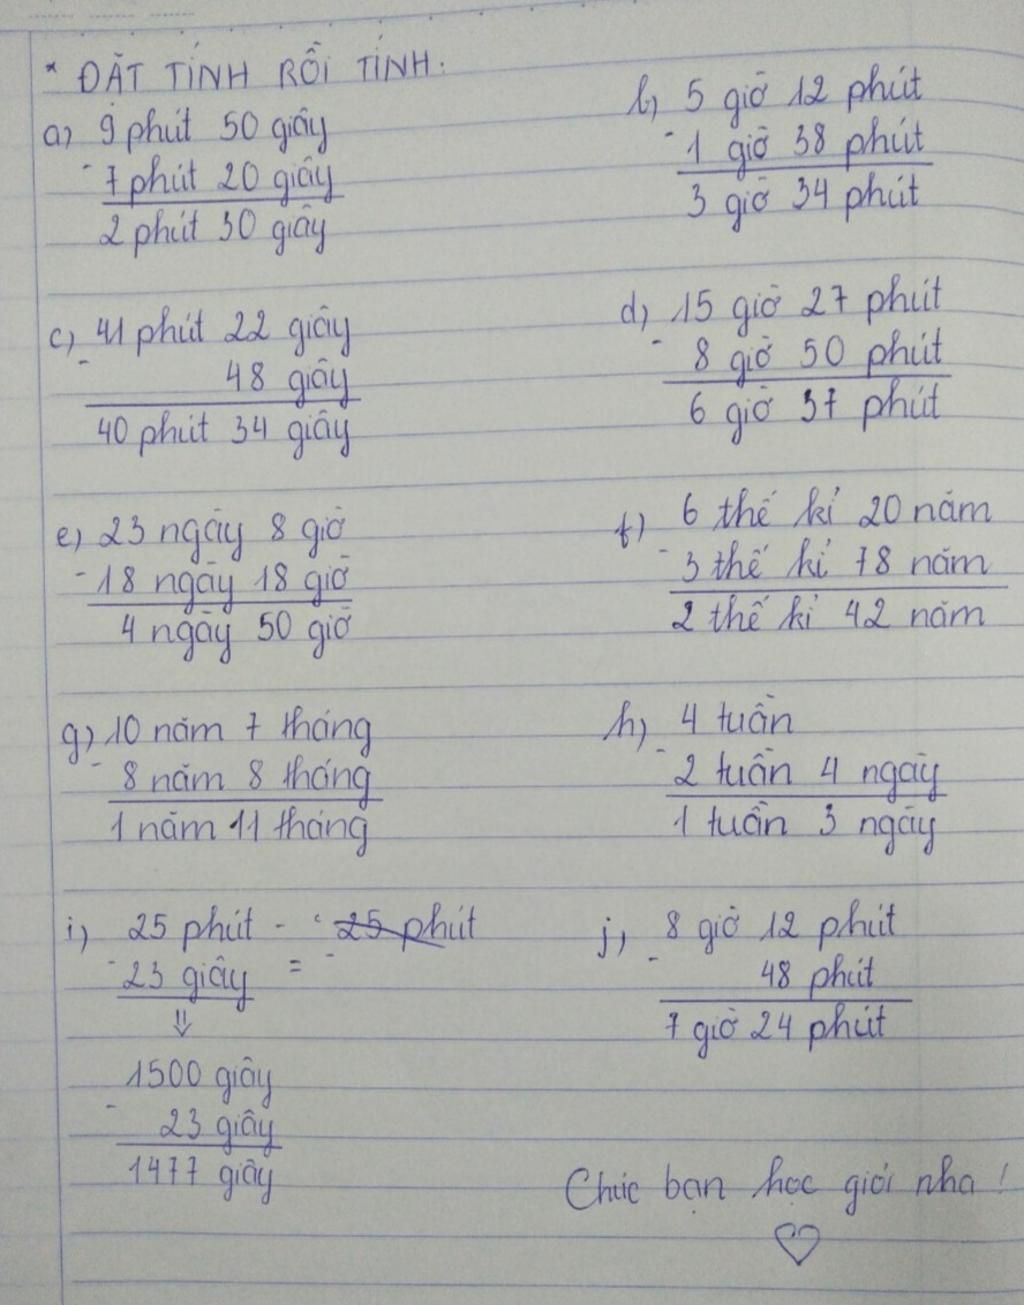 * ĐẶT TÍNH RỒI TÍNH:
a) 9 phút 50 giây
- 7 phút 20 giây
2 phút 30 giây
b) 5 giờ 12 phút
- 1 giờ 38 phút
3 giờ 34 phút
c) 41 phút 22 giây
- 48 giây
40 phút 34 giây
d) 15 giờ 27 phút
- 8 giờ 50 phút
6 giờ 37 phút
e) 23 ngày 8 giờ
- 18 ngày 18 giờ
4 ngày 50 giờ
f) 6 thế kỉ 20 năm
- 3 thế kỉ 78 năm
2 thế kỉ 42 năm
g) 10 năm 7 tháng
- 8 năm 8 tháng
1 năm 11 tháng
h) 4 tuần
- 2 tuần 4 ngày
1 tuần 3 ngày
i) 25 phút - 25 phút
- 23 giây =
⇓
1500 giây
- 23 giây
1477 giây
j) 8 giờ 12 phút
- 48 phút
7 giờ 24 phút
Chúc bạn học giỏi nha !
♡